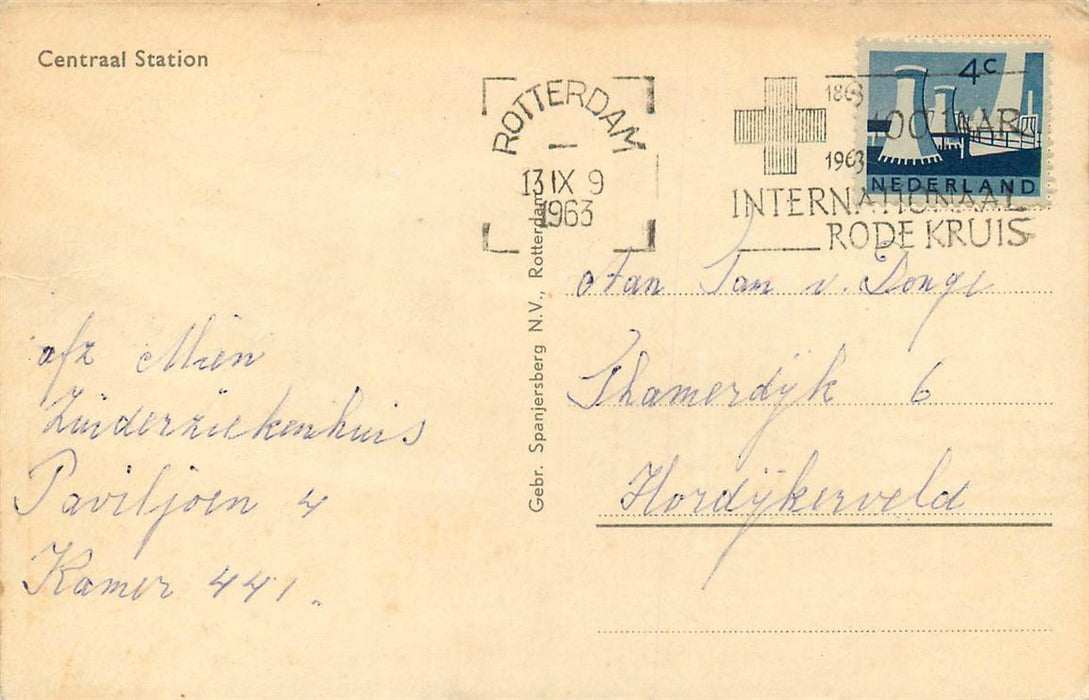 Centraal Station
ROTTERDAM
13 IX 9
1963
1863
100 JAAR
1963
INTERNATIONAAL
RODE KRUIS
4c
NEDERLAND
Gebr. Spanjersberg N.V., Rotterdam
Aan Fam v. Donge
Thamerdijk 6
Hordijkerveld
afz Mien
Zuiderziekenhuis
Paviljoen 4
Kamer 441.